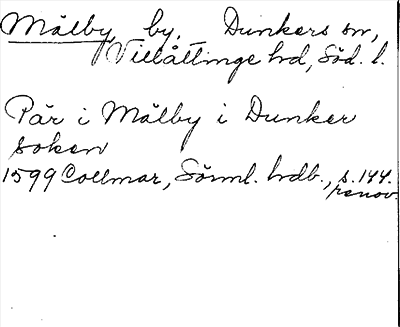 Mälby, by, Dunkers sn,
Villåttinge hd, Söd. l.
Pär i Mälby i Dunker
soken
1599 Collmar, Sörml. hdb., s. 144.
renov.